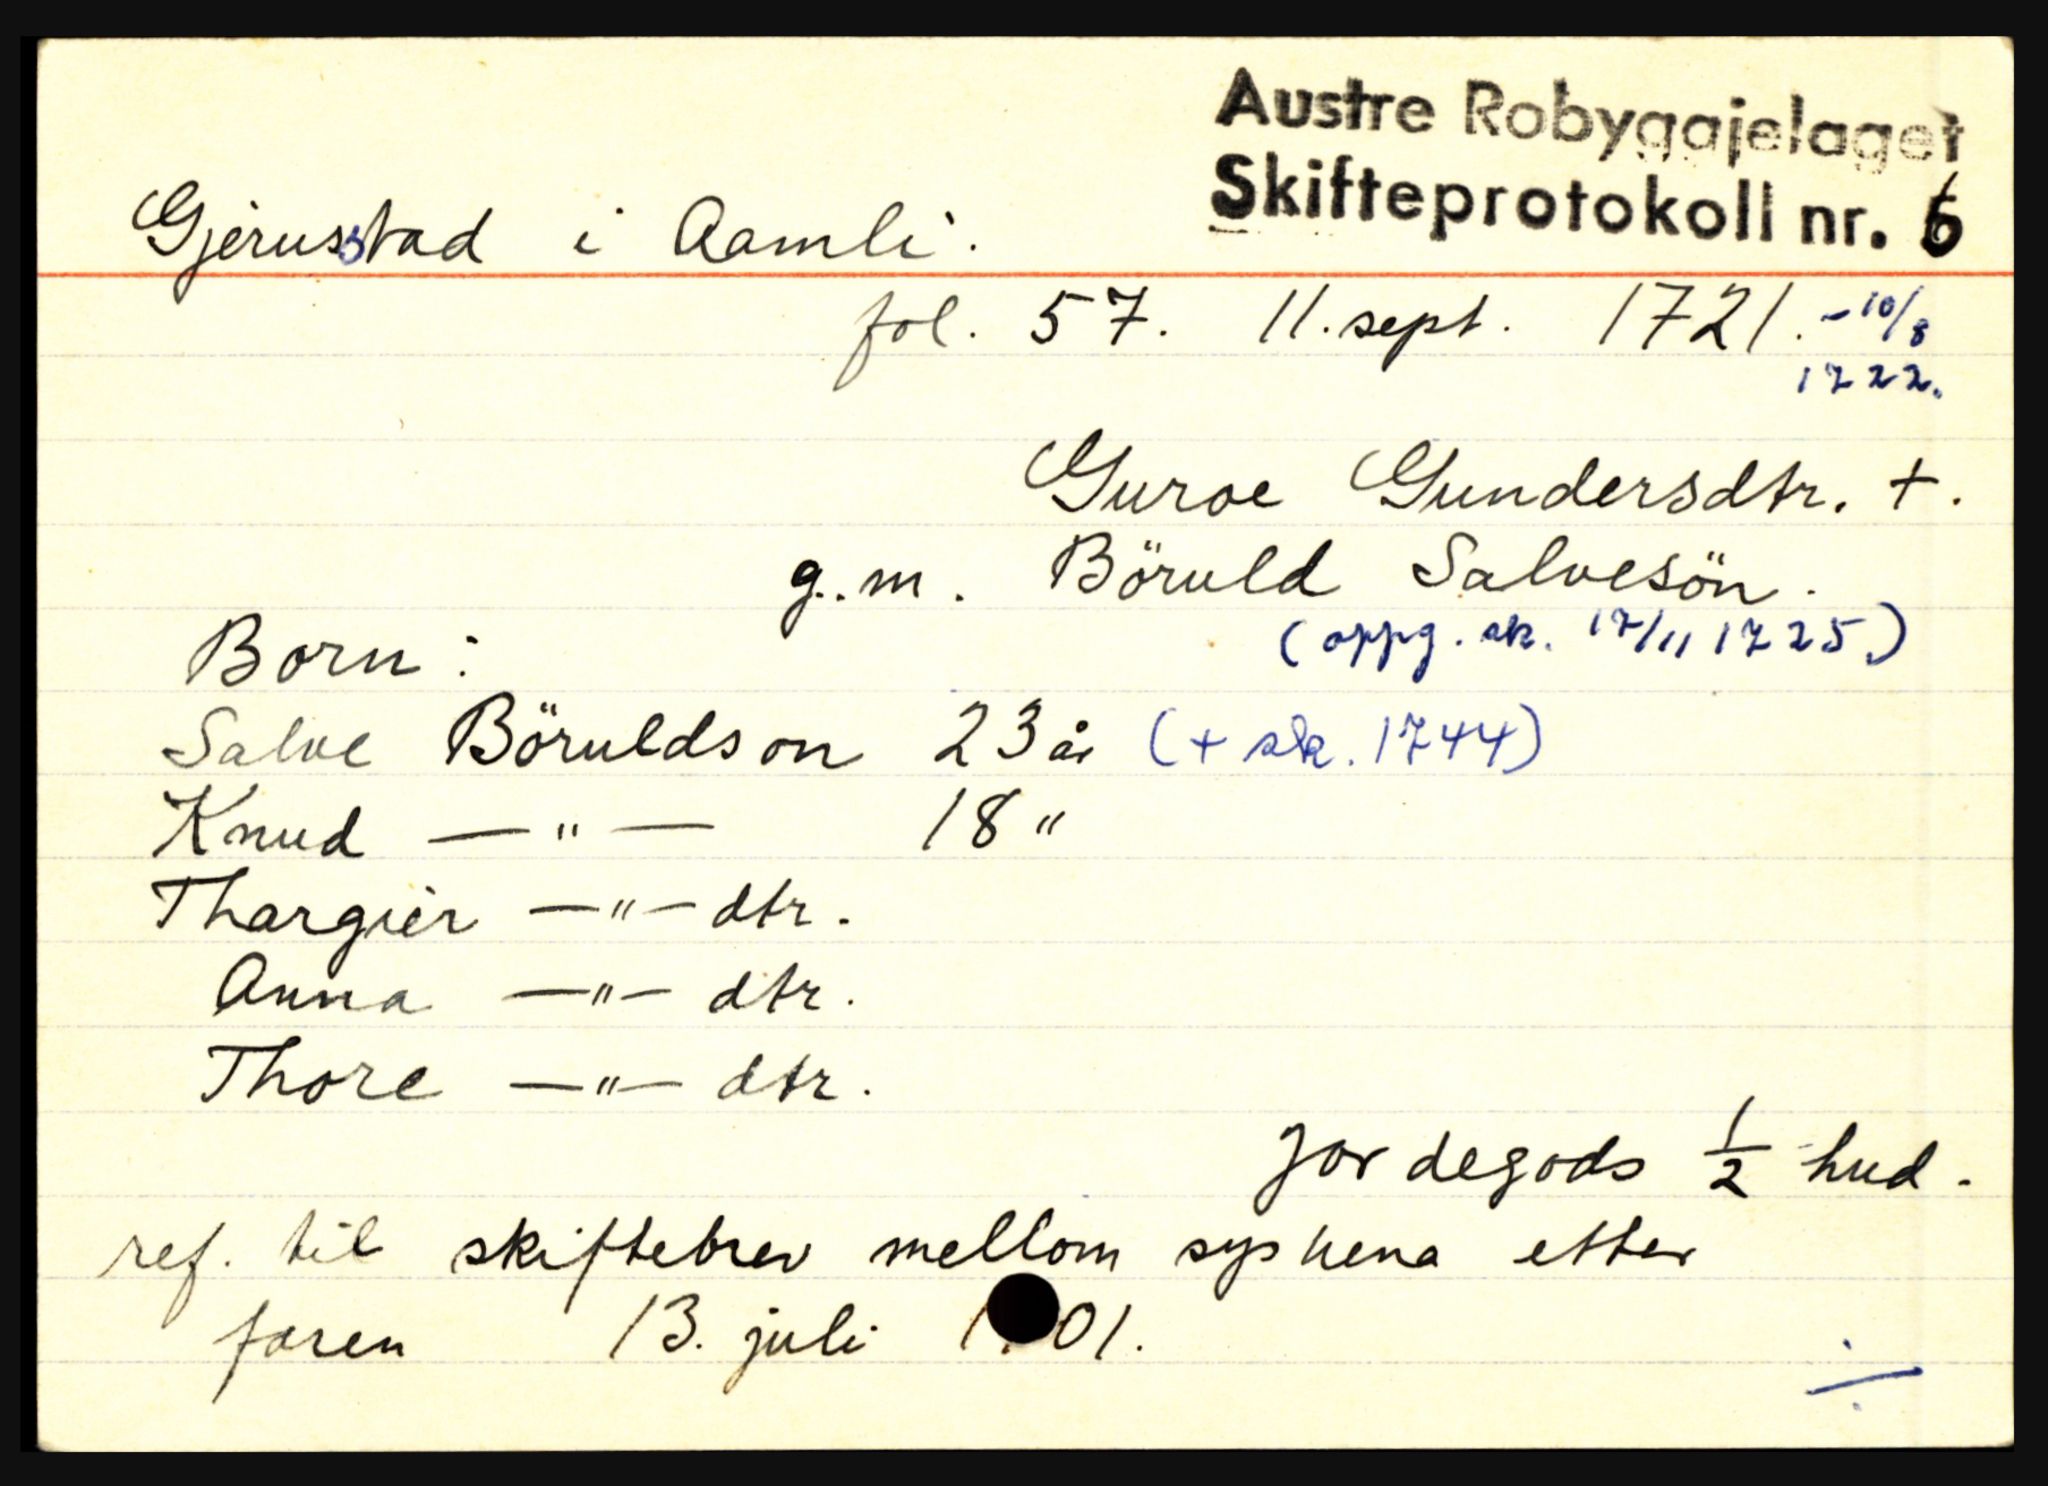 Austre Robyggjelaget
Skifteprotokoll nr. 6
Gjerusstad i Aamli.
fol. 57. 11. sept. 1721. - 10/8
1722.
Guroe Gundersdtr. +.
g.m. Böruld Salvesön.
(oppg. sk. 17/11 1725.)
Born:
Salve Börulds on 23 år (+ sk. 1744)
Knud —"— 18 "
Thargier —"— dtr.
Anna —"— dtr.
Thore —"— dtr.
Jordegods 1/2 hud.
ref. til skiftebrev mellom syskena etter
faren 13. juli 1 01.